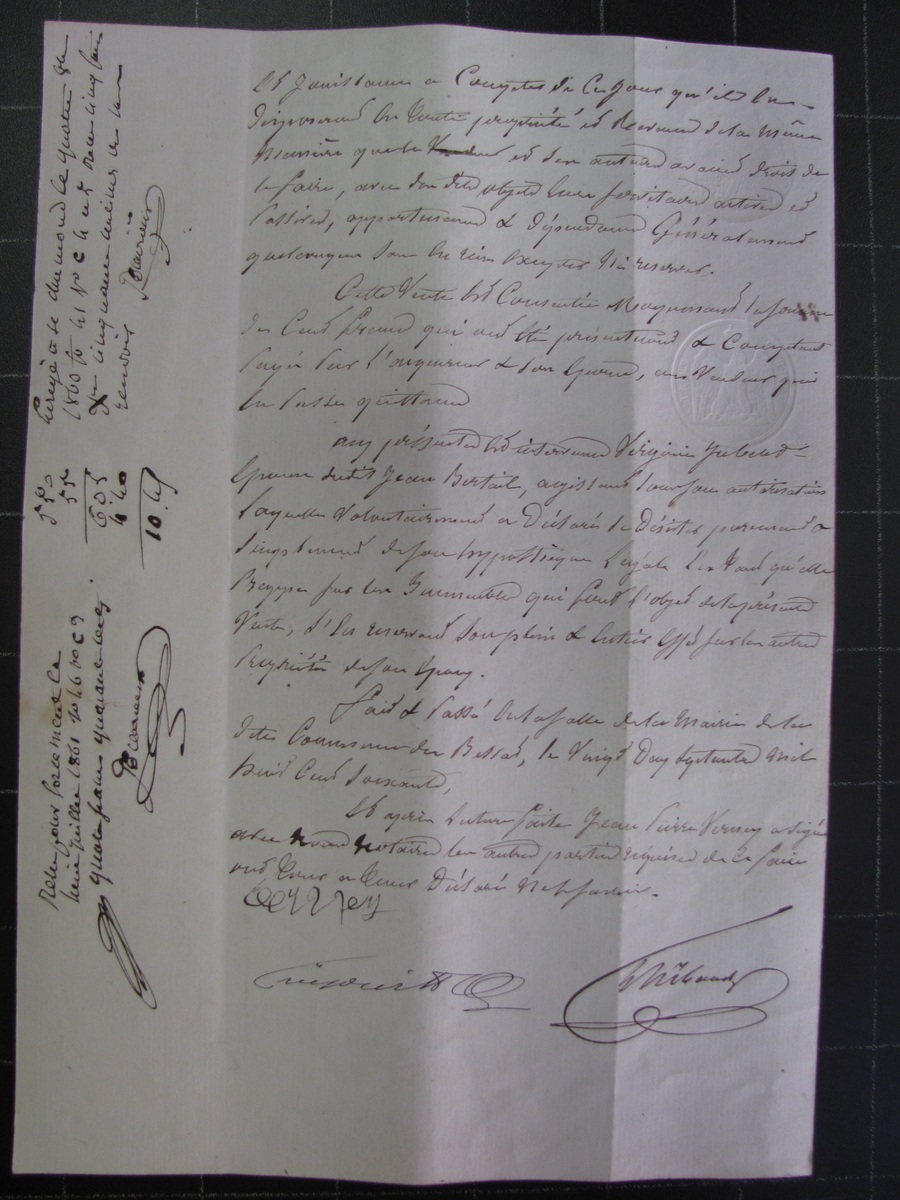 et Jouissance a Compter de Ce Jour qu'ils en
disposeront en toute propriété et Revenu de la même
manière que le Vendeur et son auteur avaient droit de
le faire, avec du dit objet leurs servitudes actives et
passives, appartenances & dépendances Généralement
quelconques sans en rien Excepter Ni reserver.
Cette Vente Est Consentie Moyennant la somme
de Cent francs qui ont été présentement & Comptant
payés par l'acquéreur & son Epouse, au Vendeur qui
En passe quittance
aux présentes Est intervenue Virginie
Epouse dudit Jean Bertail, agissant sous son autorisation
Laquelle Volontairement a Déclaré se Désister purement &
simplement de son hypothèque Légale En tant qu'elle
frappe sur les Immeubles qui font l'objet de la présente
Vente, s'En reservant son plein & Entier effet sur les autres
propriétés de son Epoux.
Fait & Passé En la salle de la Mairie de la
dite Commune du Bessat, le Vingt Deux septembre mil
huit Cent soixante,
Et après lecture faite Jean Pierre Verney a signé
avec nous Notaire les autres parties requises de ce faire
ont Tous a Tours Déclaré Ne savoir.
Verney
Thibaud
Enregistré à St chamond le quatre 8bre
1860 f° 41 V° C 4 et 5 Recu cinq francs
cinquante centimes
renvoi
5 50
55
6 05
4 40
10 45
Relevé pour forcement le
huit juillet 1861 n° 46 V° C 9
quatre francs quarante centimes